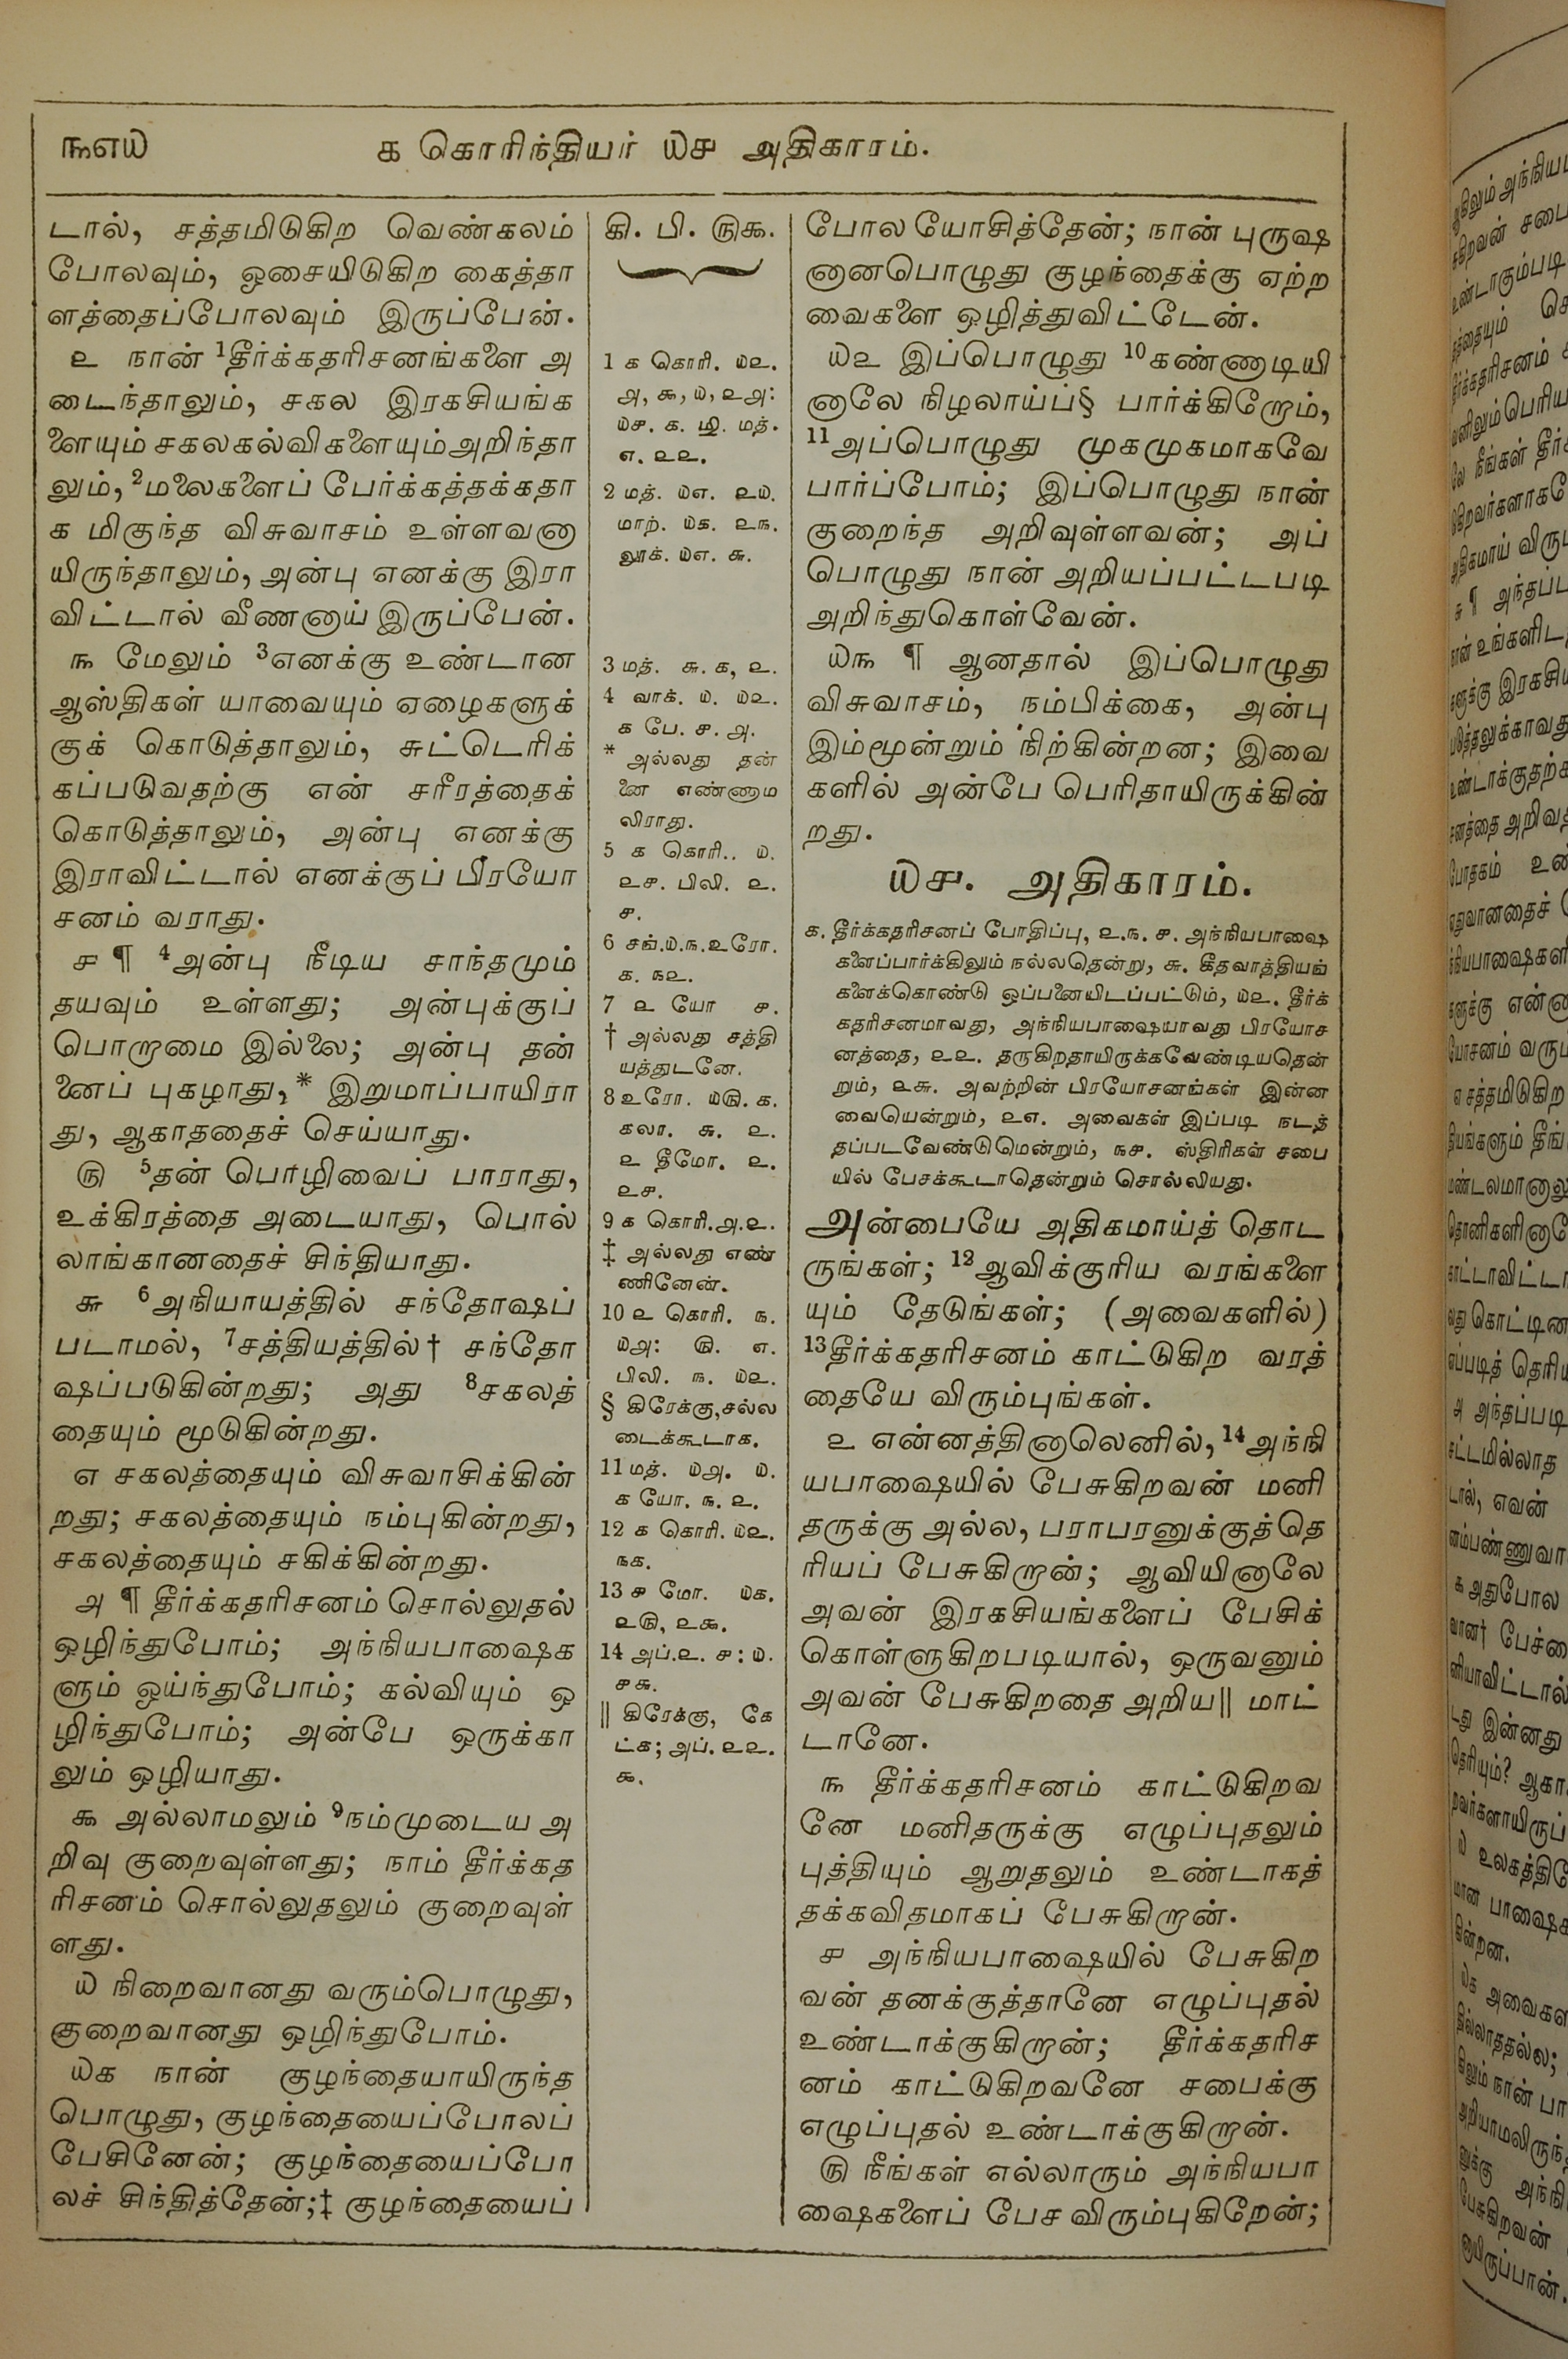 ௩௭௰
௧ கொரிந்தியர் ௰௪ அதிகாரம்.
டால், சத்தமிடுகிற வெண்கலம்
போலவும், ஓசையிடுகிற கைத்தா
ளத்தைப்போலவும் இருப்பேன்.
௨ நான் 1தீர்க்கதரிசனங்களை அ
டைந்தாலும், சகல இரகசியங்க
ளையும் சகலகல்விகளையும்அறிந்தா
லும், 2மலைகளைப் பேர்க்கத்தக்கதா
க மிகுந்த விசுவாசம் உள்ளவனா
யிருந்தாலும், அன்பு எனக்கு இரா
விட்டால் வீணனாய் இருப்பேன்.
௩ மேலும் 3எனக்கு உண்டான
ஆஸ்திகள் யாவையும் ஏழைகளுக்
குக் கொடுத்தாலும், சுட்டெரிக்
கப்படுவதற்கு என் சரீரத்தைக்
கொடுத்தாலும், அன்பு எனக்கு
இராவிட்டால் எனக்குப் பிரயோ
சனம் வராது.
௪ ¶ 4அன்பு நீடிய சாந்தமும்
தயவும் உள்ளது; அன்புக்குப்
பொறாமை இல்லை; அன்பு தன்
னைப் புகழாது,* இறுமாப்பாயிரா
து, ஆகாததைச் செய்யாது.
௫ 5தன் பொழிவைப் பாராது,
உக்கிரத்தை அடையாது, பொல்
லாங்கானதைச் சிந்தியாது.
௬ 6அநியாயத்தில் சந்தோஷப்
படாமல், 7சத்தியத்தில்† சந்தோ
ஷப்படுகின்றது; அது 8சகலத்
தையும் மூடுகின்றது.
௭ சகலத்தையும் விசுவாசிக்கின்
றது; சகலத்தையும் நம்புகின்றது,
சகலத்தையும் சகிக்கின்றது.
௮ ¶ தீர்க்கதரிசனம் சொல்லுதல்
ஒழிந்துபோம்; அந்நியபாஷைக
ளும் ஓய்ந்துபோம்; கல்வியும் ஒ
ழிந்துபோம்; அன்பே ஒருக்கா
லும் ஒழியாது.
௯ அல்லாமலும் 9நம்முடைய அ
றிவு குறைவுள்ளது; நாம் தீர்க்கத
ரிசனம் சொல்லுதலும் குறைவுள்
ளது.
௰ நிறைவானது வரும்பொழுது,
குறைவானது ஒழிந்துபோம்.
௰௧ நான் குழந்தையாயிருந்த
பொழுது, குழந்தையைப்போலப்
பேசினேன்; குழந்தையைப்போ
லச் சிந்தித்தேன்;‡ குழந்தையைப்
கி. பி. ௫௯.
1 ௧ கொரி. ௰௨.
௮, ௯, ௰, ௨௮:
௰௪. ௧. மத்.
௭. ௨௨.
2 மத். ௰௭. ௨௰.
மாற். ௰௧. ௨௩.
லூக். ௰௭. ௬.
3 மத். ௬. ௧, ௨.
4 வாக். ௰. ௰௨.
௧ பே. ௪. ௮.
* அல்லது தன்
னை எண்ணாம
லிராது.
5 ௧ கொரி.. ௰.
௨௪. பிலி. ௨.
௪.
6 சங்.௰.௩.உரோ.
௧. ௩௨.
7 ௨ யோ ௪.
† அல்லது சத்தி
யத்துடனே.
8 உரோ. ௰௫. ௧.
கலா. ௬. ௨.
௨ தீமோ. ௨.
௨௪.
9 ௧ கொரி.௮.௨.
‡ அல்லது எண்
ணினேன்.
10 ௨ கொரி. ௩.
௰௮: ௫. ௭.
பிலி. ௩. ௰௨.
§ கிரேக்கு,சல்ல
டைக்கூடாக.
11 மத். ௰௮. ௰.
௧ யோ. ௩. ௨.
12 ௧ கொரி. ௰௨.
௩௧.
13 ௪ மோ. ௰௧.
௨௫, ௨௯.
14 அப்.௨. ௪: ௰.
௪௬.
|| கிரேக்கு, கே
ட்க; அப். ௨௨.
௯.
போல யோசித்தேன்; நான் புருஷ
னானபொழுது குழந்தைக்கு ஏற்ற
வைகளை ஒழித்துவிட்டேன்.
௰௨ இப்பொழுது 10கண்ணாடியி
னாலே நிழலாய்ப்§ பார்க்கிறோம்,
11அப்பொழுது முகமுகமாகவே
பார்ப்போம்; இப்பொழுது நான்
குறைந்த அறிவுள்ளவன்; அப்
பொழுது நான் அறியப்பட்டபடி
அறிந்துகொள்வேன்.
௰௩ ¶ ஆனதால் இப்பொழுது
விசுவாசம், நம்பிக்கை, அன்பு
இம்மூன்றும் நிற்கின்றன; இவை
களில் அன்பே பெரிதாயிருக்கின்
றது.
௰௪. அதிகாரம்.
௧. தீர்க்கதரிசனப் போதிப்பு, ௨.௩. ௪. அந்நியபாஷை
களைப்பார்க்கிலும் நல்லதென்று, ௬. கீதவாத்தியங்
களைக்கொண்டு ஒப்பனையிடப்பட்டும், ௰௨. தீர்க்
கதரிசனமாவது, அந்நியபாஷையாவது பிரயோச
னத்தை, ௨௨. தருகிறதாயிருக்கவேண்டியதென்
றும், ௨௬. அவற்றின் பிரயோசனங்கள் இன்ன
வையென்றும், ௨௭. அவைகள் இப்படி நடத்
தப்படவேண்டுமென்றும், ௩௪. ஸ்திரிகள் சபை
யில் பேசக்கூடாதென்றும் சொல்லியது.
அன்பையே அதிகமாய்த் தொட
ருங்கள்; 12ஆவிக்குரிய வரங்களை
யும் தேடுங்கள்; (அவைகளில்)
13தீர்க்கதரிசனம் காட்டுகிற வரத்
தையே விரும்புங்கள்.
௨ என்னத்தினாலெனில், 14அந்நி
யபாஷையில் பேசுகிறவன் மனி
தருக்கு அல்ல, பராபரனுக்குத்தெ
ரியப் பேசுகிறான்; ஆவியினாலே
அவன் இரகசியங்களைப் பேசிக்
கொள்ளுகிறபடியால், ஒருவனும்
அவன் பேசுகிறதை அறிய|| மாட்
டானே.
௩ தீர்க்கதரிசனம் காட்டுகிறவ
னே மனிதருக்கு எழுப்புதலும்
புத்தியும் ஆறுதலும் உண்டாகத்
தக்கவிதமாகப் பேசுகிறான்.
௪ அந்நியபாஷையில் பேசுகிற
வன் தனக்குத்தானே எழுப்புதல்
உண்டாக்குகிறான்; தீர்க்கதரிச
னம் காட்டுகிறவனே சபைக்கு
எழுப்புதல் உண்டாக்குகிறான்.
௫ நீங்கள் எல்லாரும் அந்நியபா
ஷைகளைப் பேச விரும்புகிறேன்;